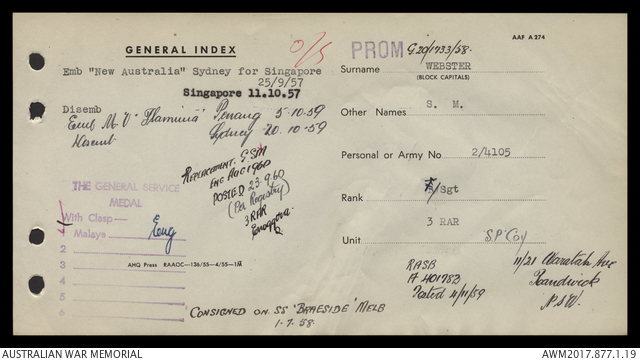 AAF A 274
GENERAL INDEX
O/S
PROM G.20/1733/58.
Emb "New Australia" Sydney for Singapore
25/9/57
Surname WEBSTER
(BLOCK CAPITALS)
Singapore 11.10.57
Disemb
Emb M.V "Flaminia" Penang 5-10-59
Disemb Sydney 20.10.59
Other Names S. M.
REPLACEMENT. GSM
ENG AUG 1960
POSTED 23.9.60
(Per Registry)
3 RAR
Enoggera
Personal or Army No 2/4105
Rank Sgt
3 RAR
Unit S.P. Coy
THE GENERAL SERVICE
MEDAL
With Clasp—
1 Malaya Eng
2
3
4
5
6
AHQ Press RAAOC—136/55—4/55—1M
RASB
A 401782
Dated 4/11/59
11/21 Waratah Ave
Randwick
N.S.W.
CONSIGNED ON SS 'BRAESIDE' MELB
1-7-58
AUSTRALIAN WAR MEMORIAL
AWM2017.877.1.19